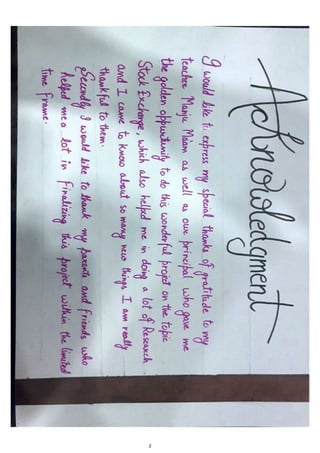 Acknowledgment
I would like to express my special thanks of gratitude to my
teacher Manju Maam as well as our principal who gave me
the golden oppurtunity to do this wonderful project on the topic
Stock Exchange, which also helped me in doing a lot of Research
and I came to know about so many new things I am really
thankful to them.
Secondly I would like to thank my parents and friends who
helped me a lot in Finalizing this project within the limited
time frame.
2